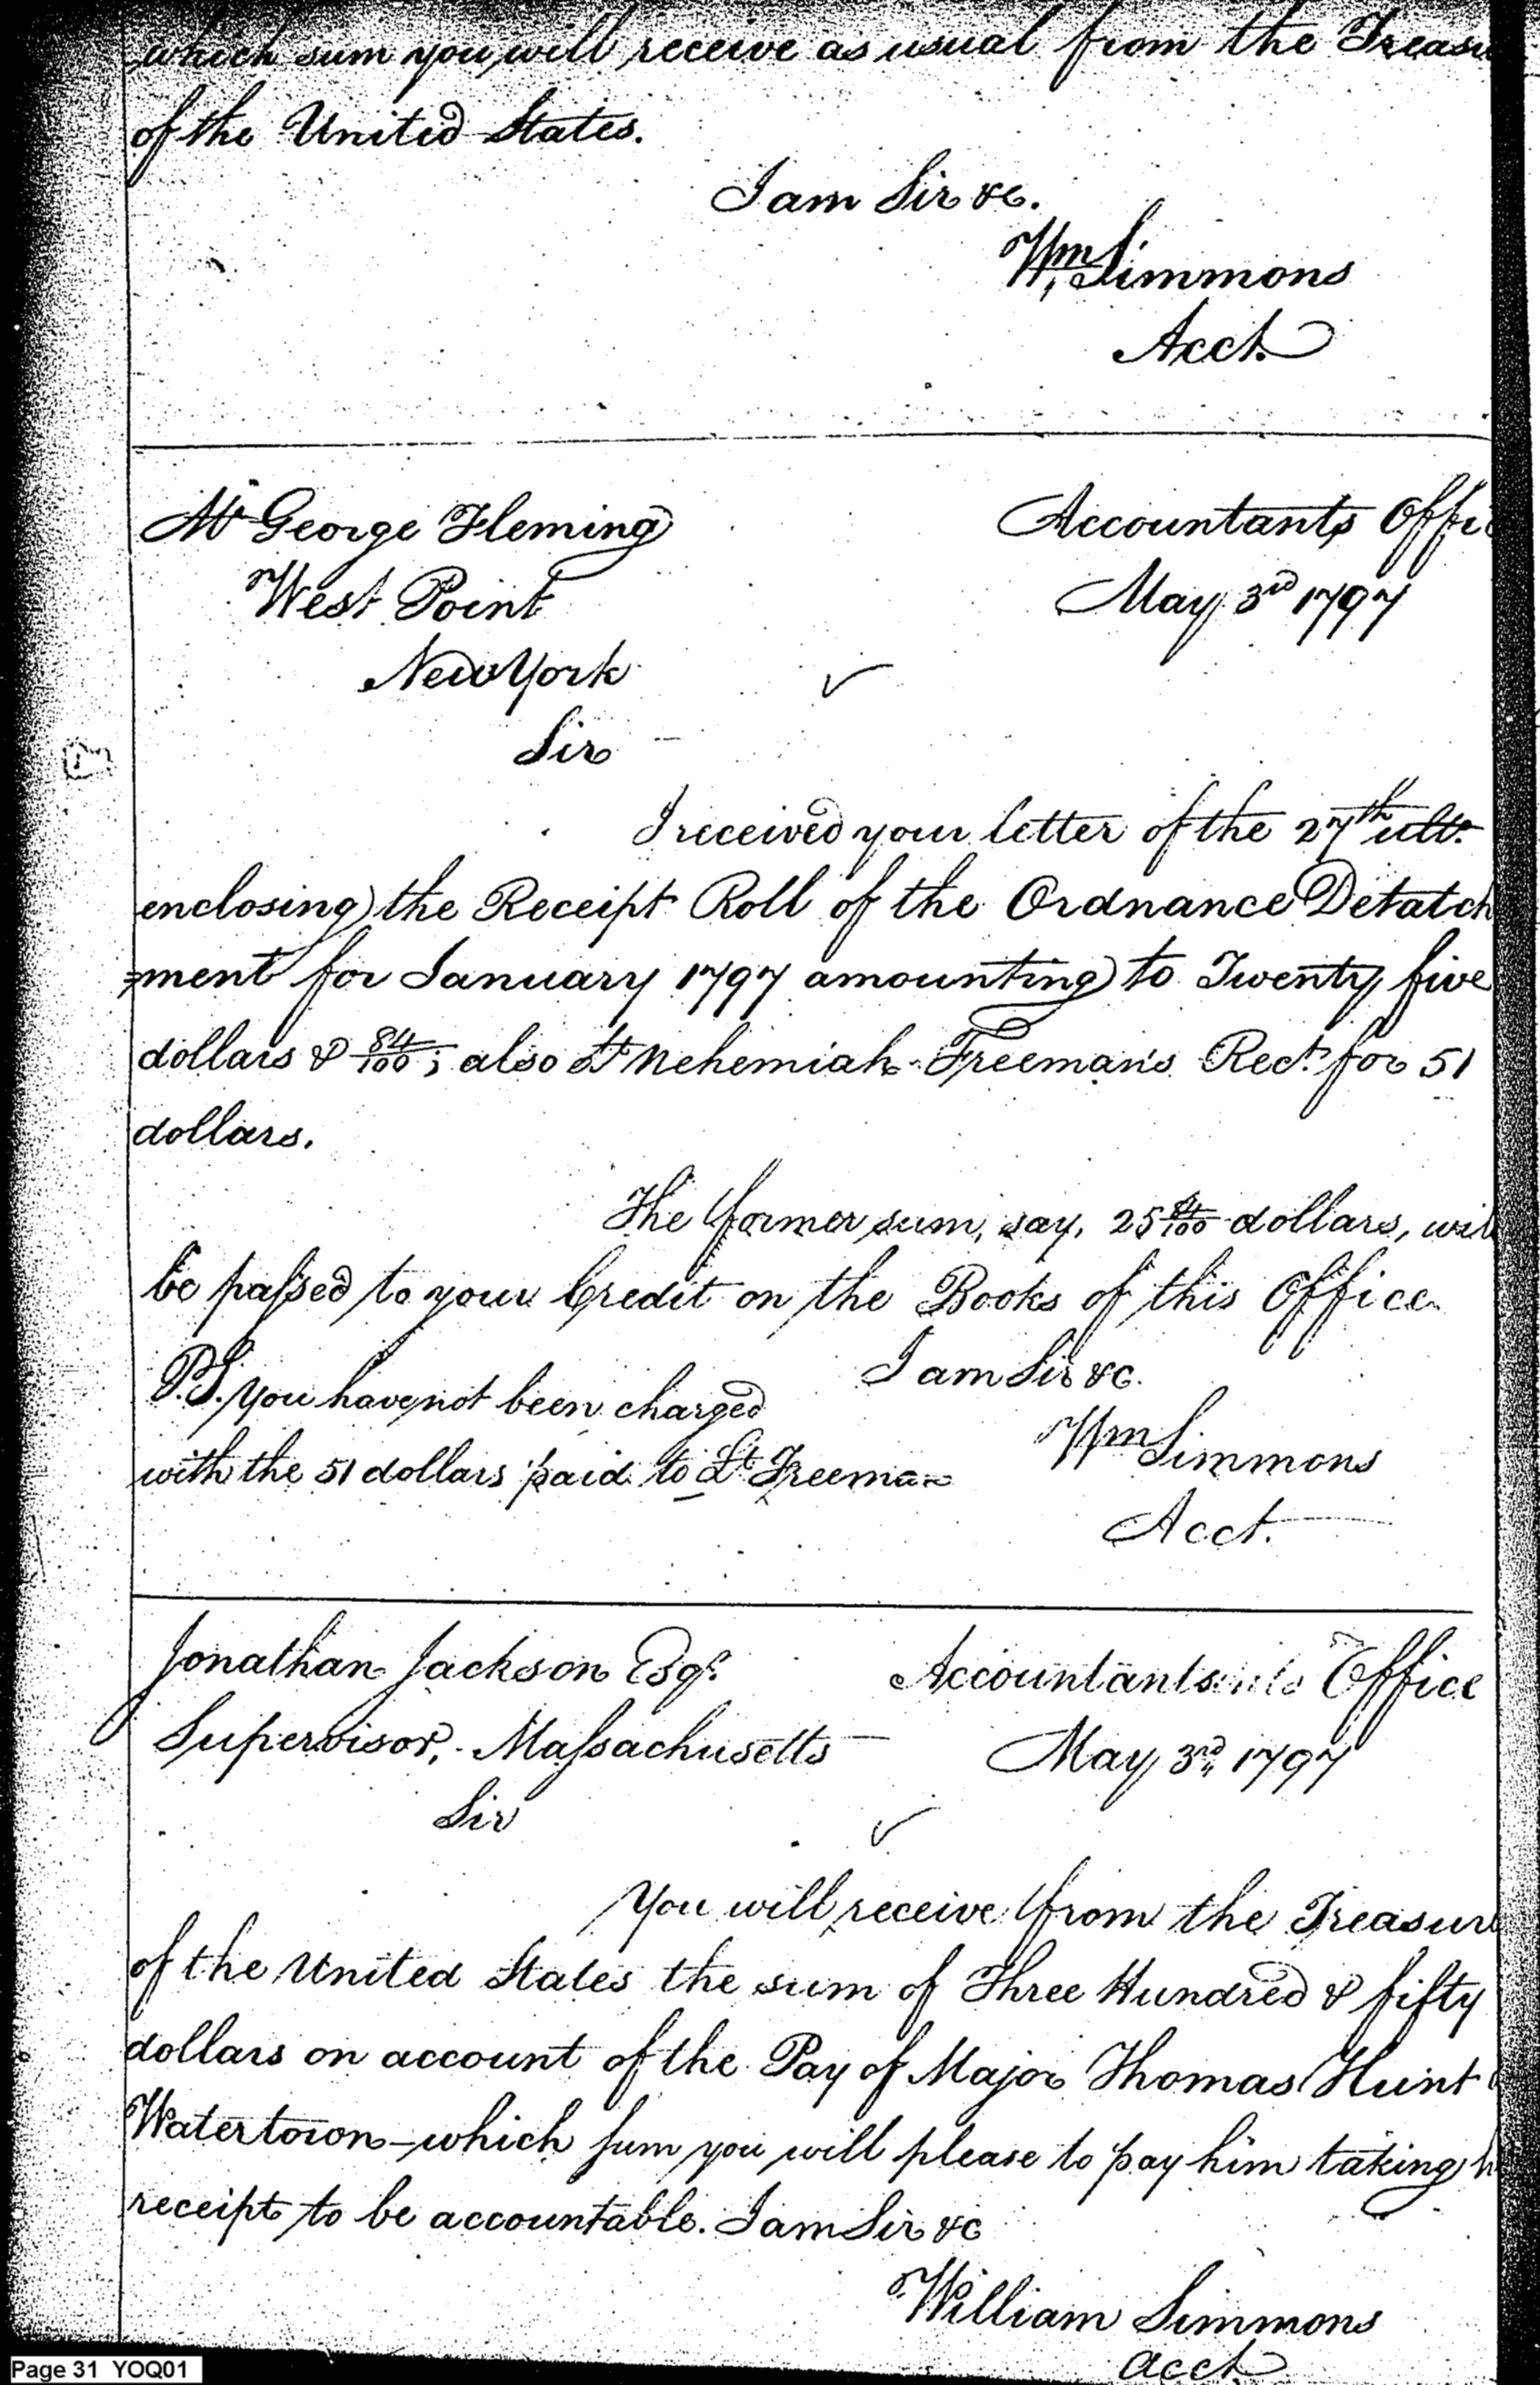 which sum you will receive as usual from the Treasu
of the United States.
I am Sir &c.
Wm Simmons
Acct.
Mr George Fleming
Accountants Offi
West Point
May 3rd 1797
New York
Sir
I received your letter of the 27th ulto
enclosing the Receipt Roll of the Ordnance Detatch
=ment for January 1797 amounting to Twenty five
dollars & 84/100; also Lt Nehemiah Freeman's Rect. for 51
dollars.
The former sum, say, 25 84/100 dollars, will
be paſsed to your Credit on the Books of this Office
I am Sir &c.
P.S. you have not been charged
Wm Simmons
with the 51 dollars paid to Lt Freeman
Acct.
Jonathan Jackson Esqr.
Accountants Office
Supervisor, Maſsachusetts
May 3rd 1797
Sir
You will receive from the Treasure
of the United States the sum of Three Hundred & fifty
dollars on account of the Pay of Major Thomas Hunt
Watertown - which sum you will please to pay him taking h
receipt to be accountable. I am Sir &c
William Simmons
acct
Page 31 YOQ01